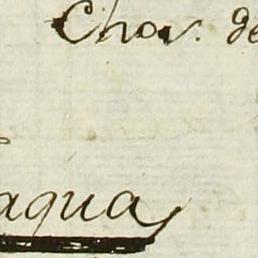 Chov. de
aqua